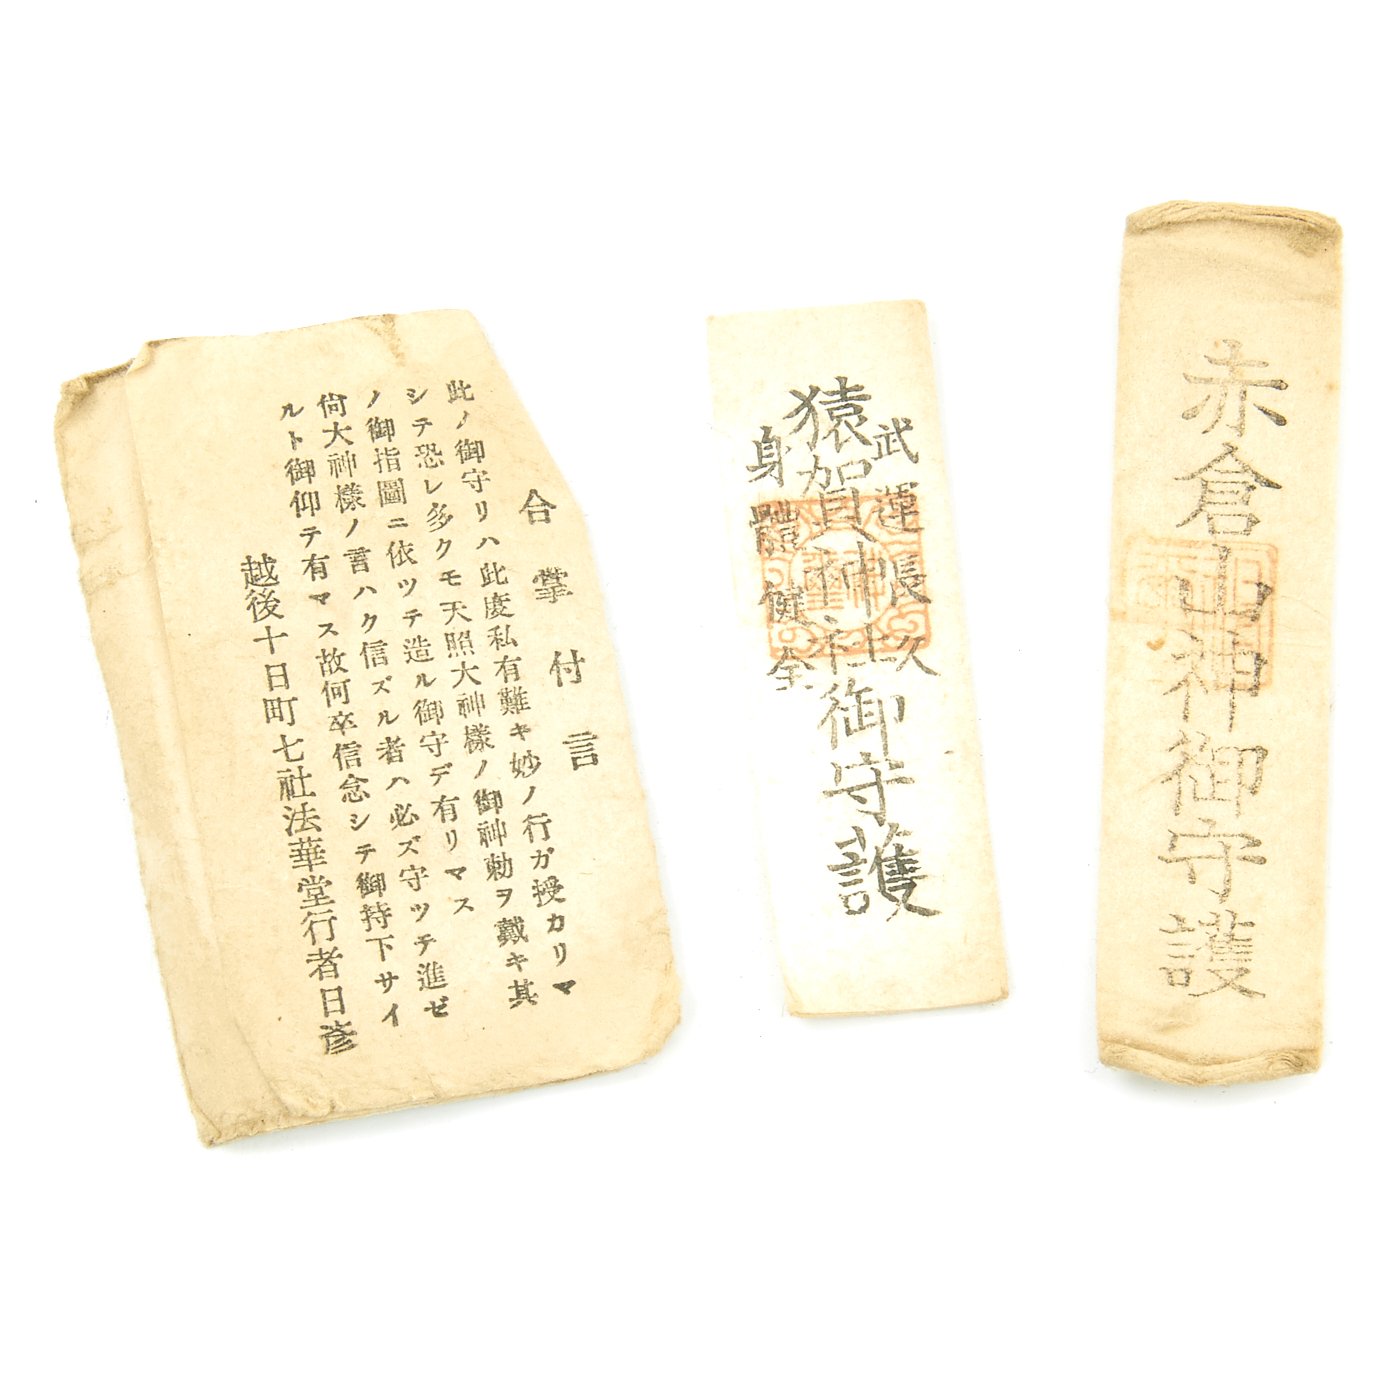 合掌付言
此ノ御守リハ此度私有難キ妙ノ行ガ授カリマ
シテ恐レ多クモ天照大神様ノ御神勅ヲ戴キ其
ノ御指圖ニ依ツテ造ル御守デ有リマス
尙大神様ノ言ハク信ズル者ハ必ズ守ツテ進ゼ
ルト御仰テ有マス故何卒信念シテ御持下サイ
越後十日町七社法華堂行者日彦
武運長久
猿賀神社御守護
身體健全
赤倉山神御守護